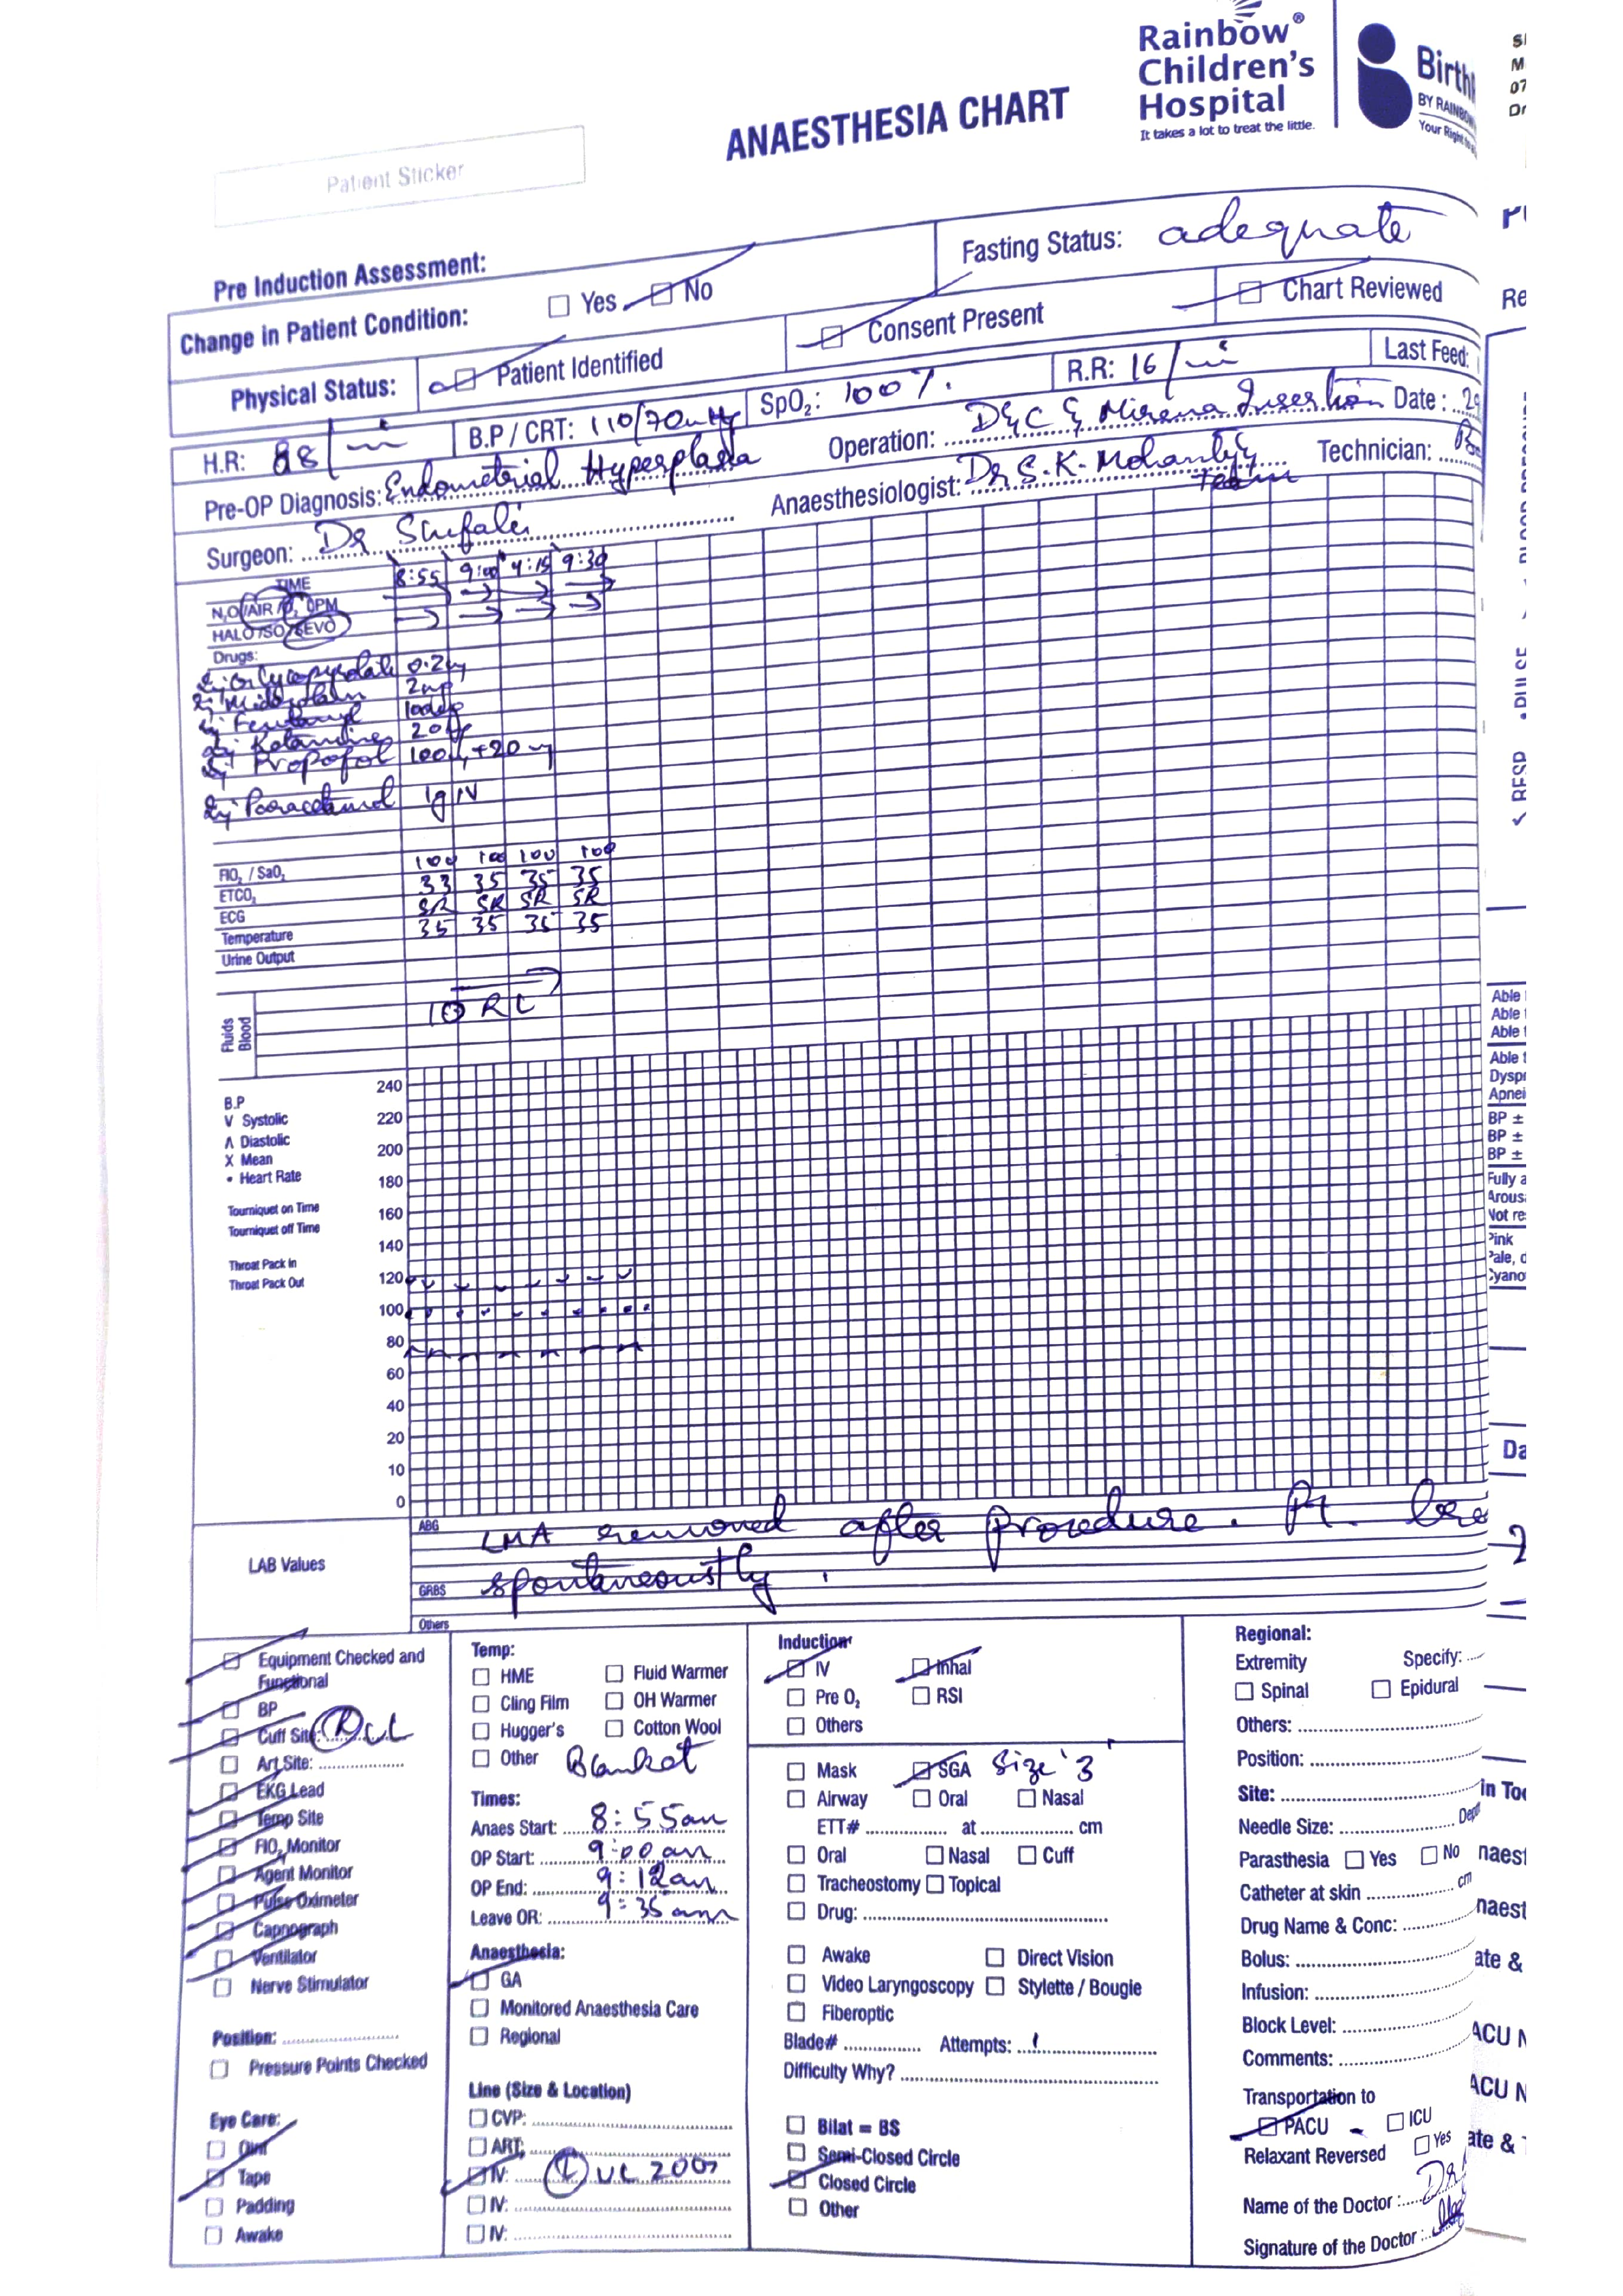 Rainbow®
Children's
Hospital
It takes a lot to treat the little.
Birth
BY RAINBOW
Your Right to
ANAESTHESIA CHART
Patient Sticker
Pre Induction Assessment:
Fasting Status: adequate
Change in Patient Condition: Yes No
Chart Reviewed
Physical Status: Patient Identified Consent Present
Last Feed:
H.R: 88/min B.P / CRT: 110/70mmHg SpO₂: 100%. R.R: 16/min
Pre-OP Diagnosis: Endometrial Hyperplasia Operation: D&C & Mirena Insertion Date: 29
Surgeon: Dr Shefali Anaesthesiologist: Dr S.K. Mohanty Team Technician:
TIME 8:55 9:00 9:15 9:30
N₂O/AIR/O₂ LPM
HALO/ISO/SEVO
Drugs:
Inj Glycopyrolate 0.2mg
Inj Midazolam 2mg
Inj Fentanyl
Inj Ketamine
Inj Propofol 100mg+20mg
Inj Paracetamol 1g IV
FIO₂ / SaO₂ 100 100 100 100
ETCO₂ 33 35 35 35
ECG SR SR SR SR
Temperature 35 35 35 35
Urine Output
Fluids
Blood
RL
B.P
V Systolic
Λ Diastolic
X Mean
• Heart Rate
Tourniquet on Time
Tourniquet off Time
Throat Pack In
Throat Pack Out
240
220
200
180
160
140
120
100
80
60
40
20
10
0
LAB Values
ABG
GRBS
Others
LMA removed after Procedure. Pt.
spontaneously.
Equipment Checked and
Functional
BP
Cuff Site: (R) UL
Art Site:
EKG Lead
Temp Site
FIO₂ Monitor
Agent Monitor
Pulse Oximeter
Capnograph
Ventilator
Nerve Stimulator
Position:
Pressure Points Checked
Eye Care:
Oint
Tape
Padding
Awake
Temp:
HME Fluid Warmer
Cling Film OH Warmer
Hugger's Cotton Wool
Other Blanket
Times:
Anaes Start: 8:55am
OP Start: 9:00 am
OP End: 9:12am
Leave OR: 9:35am
Anaesthesia:
GA
Monitored Anaesthesia Care
Regional
Line (Size & Location)
CVP:
ART:
IV: (L) UL 20G
IV:
IV:
Induction:
IV Inhal
Pre O₂ RSI
Others
Mask SGA Size '3'
Airway Oral Nasal
ETT# at cm
Oral Nasal Cuff
Tracheostomy Topical
Drug:
Awake Direct Vision
Video Laryngoscopy Stylette / Bougie
Fiberoptic
Blade# Attempts: 1
Difficulty Why?
Bilat = BS
Semi-Closed Circle
Closed Circle
Other
Regional:
Extremity Specify:
Spinal Epidural
Others:
Position:
Site:
Needle Size: Dept
Parasthesia Yes No
Catheter at skin cm
Drug Name & Conc:
Bolus:
Infusion:
Block Level:
Comments:
Transportation to
PACU ICU
Relaxant Reversed Yes
Name of the Doctor: Dr
Signature of the Doctor:
Able
Able
Able
Able
Dyspn
Apnei
BP ±
BP ±
BP ±
Fully a
Arousa
Not re
Pink
Pale, d
Cyano
Da
in Too
naest
naest
ate &
ACU N
ACU N
ate &